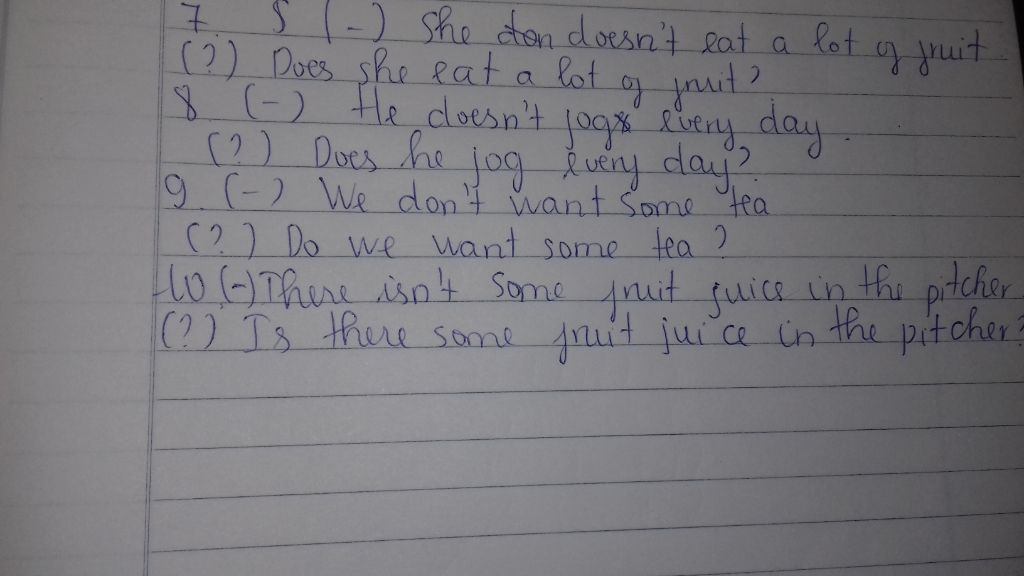 7. S (-) She don doesn't eat a lot of fruit
(?) Does she eat a lot of fruit?
8 (-) He doesn't jog every day.
(?) Does he jog every day?
9. (-) We don't want some tea
(?) Do we want some tea?
10 (-) There isn't some fruit juice in the pitcher
(?) Is there some fruit juice in the pitcher?